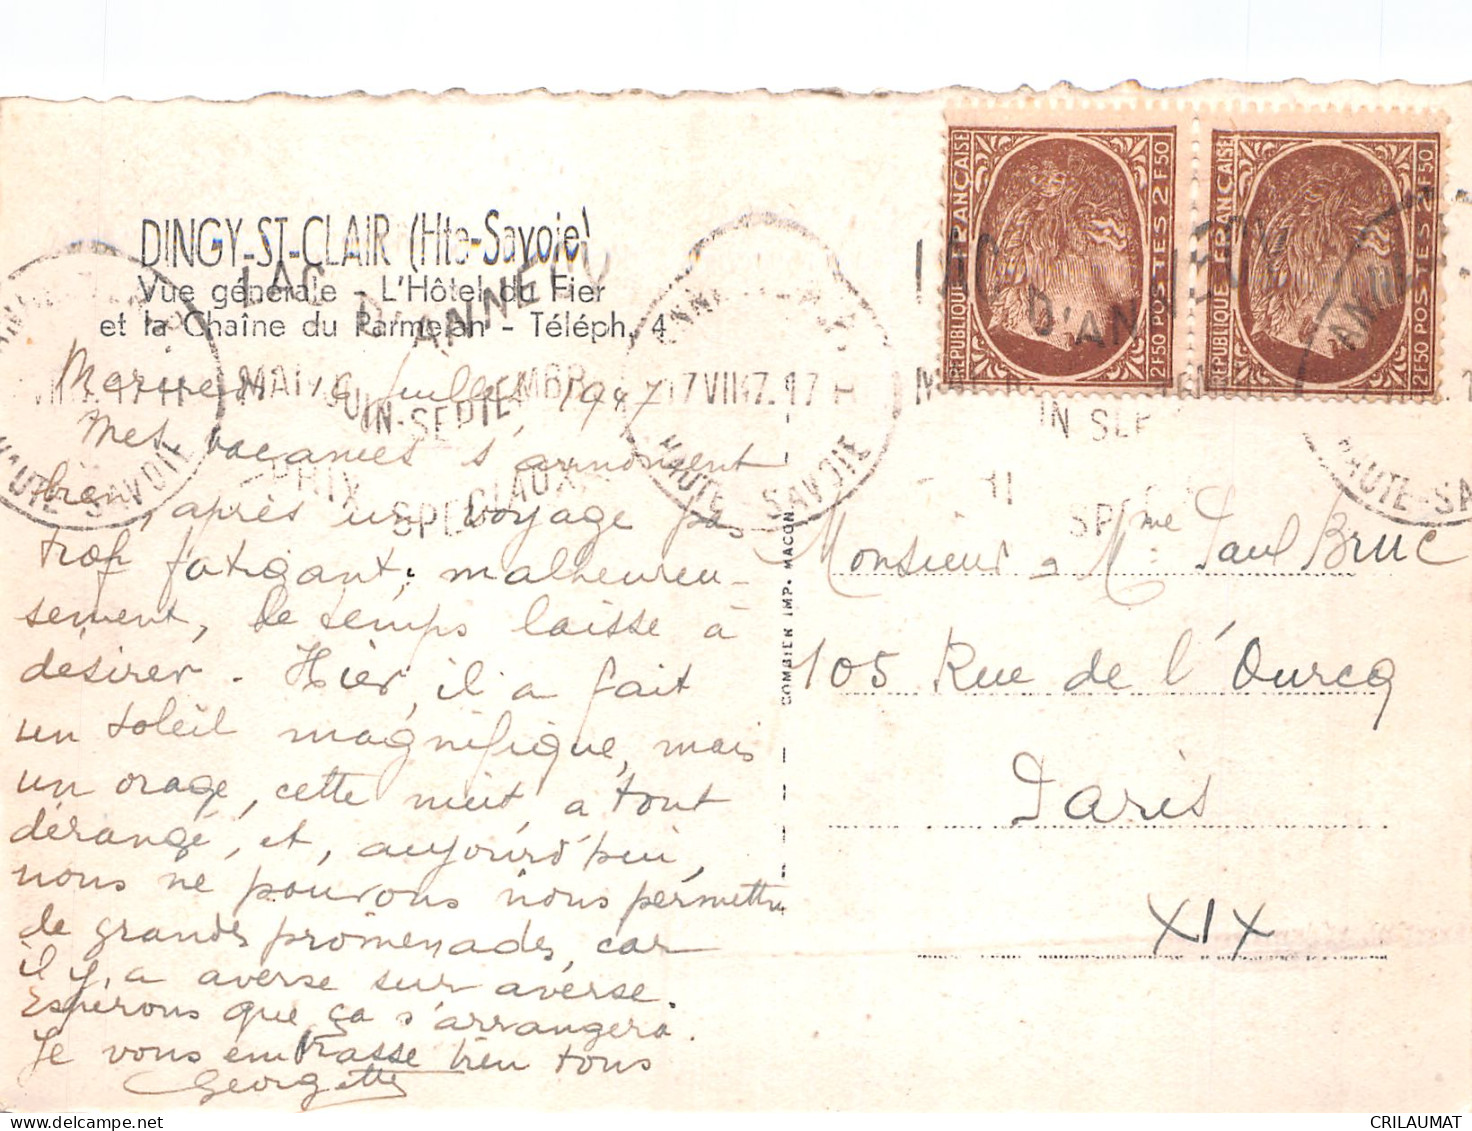 DINGY-ST-CLAIR (Hte-Savoie)
Vue générale - L'Hôtel du Fier
et la Chaîne du Parmelan - Téléph. 4
LAC
D'ANNECY
MAI
JUIN-SEPTEMBRE
PRIX
SPECIAUX
17 VII 47.17 H
HAUTE-SAVOIE
HAUTE-SAVOIE
RÉPUBLIQUE FRANÇAISE
2F50 POSTES 2F50
RÉPUBLIQUE FRANÇAISE
2F50 POSTES 2F50
LAC
D'ANNECY
HAUTE-SA
Mercredi 16 Juillet 1947
Mes vacances s'annoncent
bien, après un voyage pas
trop fatigant; malheureu-
sement, le temps laisse à
désirer. Hier, il a fait
un soleil magnifique, mais
un orage, cette nuit, a tout
dérangé, et, aujourd'hui,
nous ne pouvons nous permettre
de grandes promenades, car
il y a averse sur averse.
Espérons que ça s'arrangera.
Je vous embrasse bien tous
Georgette
COMBIER IMP. MACON
Monsieur & Mme Paul BRUC
105 Rue de l'Ourcq
Paris
XIX
CRILAUMAT